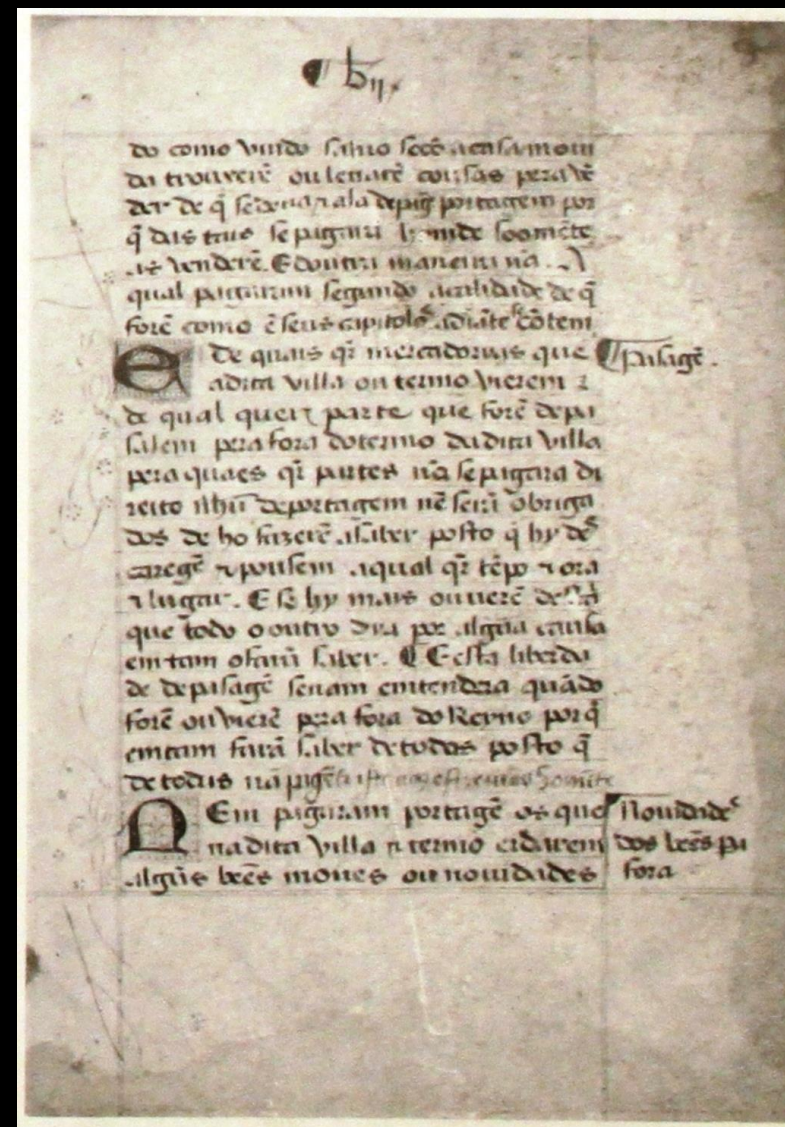 ¶ bij
do como vindo saluo se cõ a tal
da trouuerẽ ou leuarẽ cousas pera vẽ
der de q̃ se deua portagem por
q̃ das taes se pagara homde soomẽte
as venderẽ. E doutra maneira nã. A
qual pagaram segundo a calidade de q̃
forẽ como ẽ seus capitolos adiãte se cõtem
E de quaes qr̃ mercadorias que
¶ Pasagẽ.
a dita villa ou termo vierem
de qual quer parte que forẽ de pa
salem pera fora do termo da dita villa
pera quaes qr̃ partes nã se pagara di
reito nhũ de portagem nẽ serã obriga
dos de ho fazerẽ a saber posto q̃ hy des
caregẽ ⁊ pousem a qual qr̃ tẽpo ⁊ ora
⁊ lugar. E se hy mais ouuerẽ destar
que todo o outro dia por algũa causa
em tam o farã saber. ¶ E esta liberda
de de pasagẽ se nam entendera quãdo
forẽ ou vierẽ pera fora do Reyno porq̃
em tam farã saber de todas posto q̃
de todas nã pagẽ
Nem pagaram portagẽ os que
Nouidades
na dita villa ⁊ termo erdarem
dos beẽs pa
algũs beẽs moues ou nouidades
fora